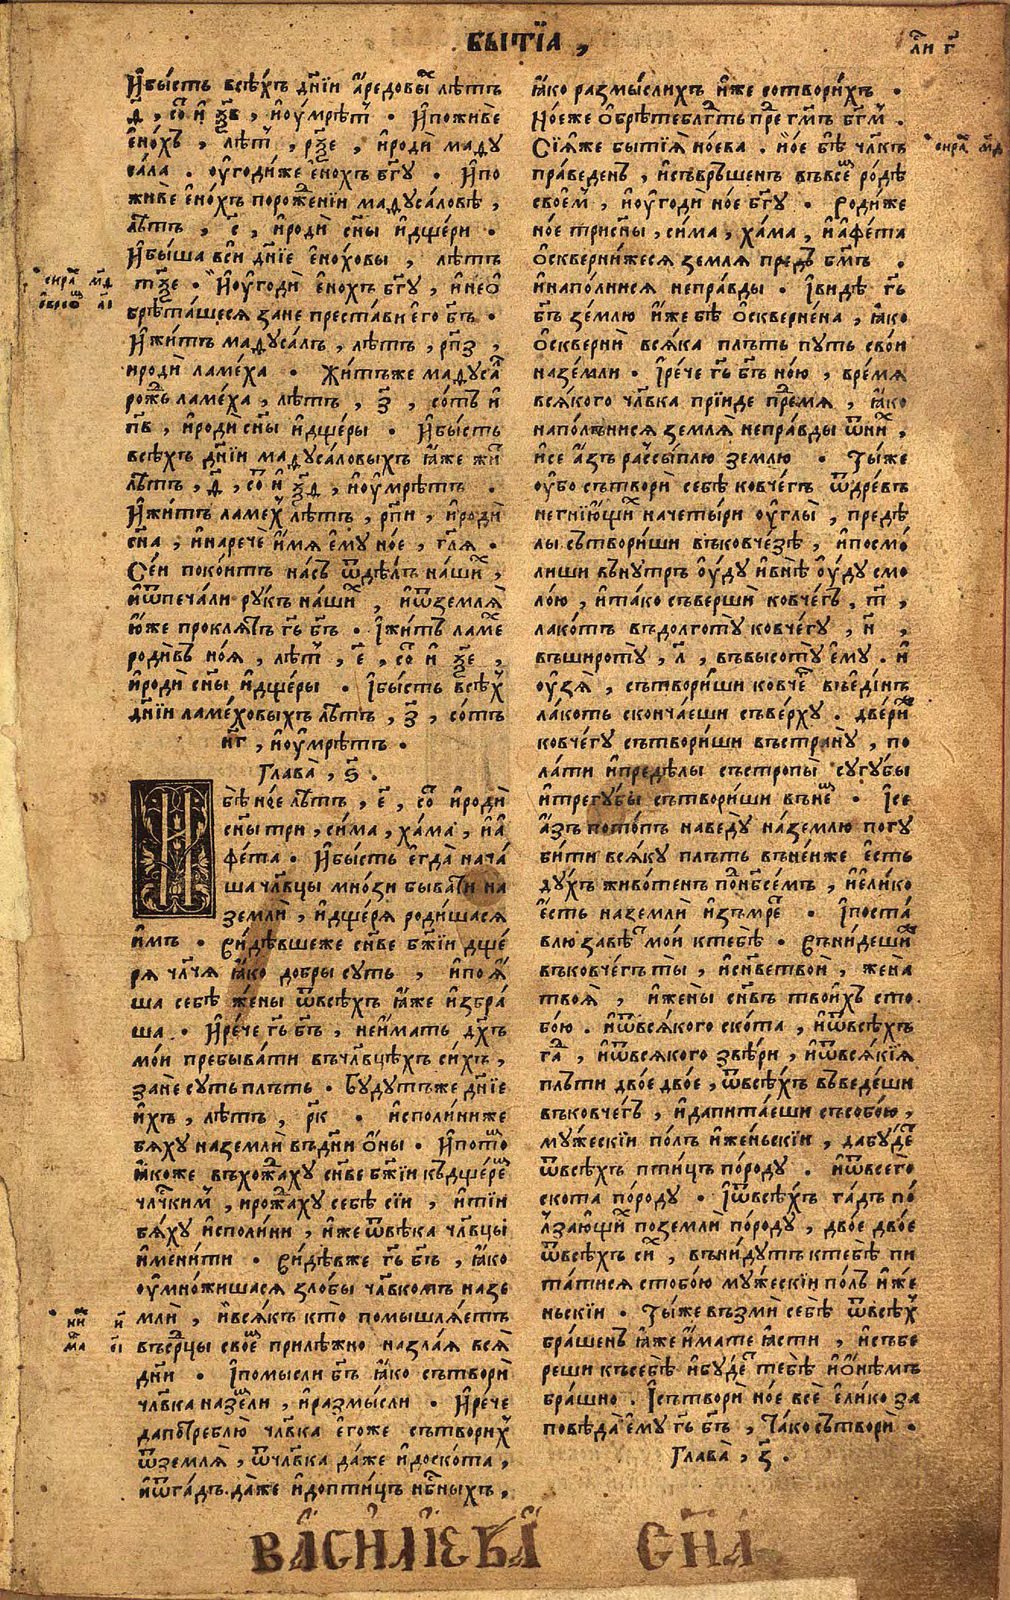 бытїа ,
ли г҃
И҆бы́сть всѣ́хъ дн҃їи а҆́редовы лѣ́тъ
д҃ , со и҆ ѯ҃в , и҆оу҆́мрѣтъ . И҆поживе
е҆но́хъ , лѣт , рѯ҃е , и҆родѝ маду
са́ла . оу҆годи́же е҆но́хъ бг҃у . И҆по
живе е҆но́хъ порожⷣенїи мадуса́ловѣ ,
лѣ́тъ , с҃ , и҆родѝ сн҃ы и҆дщери .
И҆бы́ша вси дн҃їе е҆но́ховы , лѣтъ
тѯ҃е . И҆оу҆годѝ е҆но́хъ бг҃у , и҆нео҆
брѣта́шеся зане преста́ви є҆го̀ бг҃ъ .
И҆жи́тъ мадуса́лъ , лѣ́тъ , рп҃з ,
и҆родѝ ламе́ха . Жи́тъже мадуса
рожь ламе́ха , лѣ́тъ , з҃ , со́тъ и҆
п҃в , и҆родѝ сн҃ы и҆дще́ры . И҆бы́сть
всѣ́хъ дн҃їи мадуса́ловыхъ ꙗ҆́же жи
лѣ́тъ , д҃ , со и҆ ѯ҃д , и҆оу҆́мрѣтъ .
И҆жи́тъ ламе́х лѣ́тъ , рп҃и , и҆родѝ
сн҃а , и҆наречѐ и҆́мя є҆му но́е , гл҃я .
Се́и поко́итъ на́съ ѿдѣ́лъ на́ши ,
и҆ѿпеча́ли ру́къ на́ши , и҆ѿземля̀
ю҆́же проклѧ́тъ гь҃ бг҃ъ . І҆жи́тъ ламе
роди́въ но́я , лѣт , е҃ , со и҆ ѯ҃е ,
и҆родѝ сн҃ы и҆дще́ры . І҆бы́сть всѣ́х
дн҃їи ламе́ховыхъ лѣ́тъ , з҃ , со́тъ
н҃г , и҆оу҆́мрѣтъ .
Глава̀ , ѕ҃ .
И҆бѣ но́е лѣ́тъ , е҃ , со и҆родѝ
сн҃ы три , си́ма , ха́ма , и҆а҆
фе́та . И҆бы́сть є҆гда̀ нача́
ша чл҃вцы мно́зи быва́ти на
землѝ , и҆дще́ря роди́шася
и҆мъ . ви́дѣвшеже сн҃ве бж҃їи дще́
ря чл҃чя ꙗ҆́ко добры су́ть , и҆поя҆́
ша себѣ̀ же́ны ѿвсѣ́хъ ꙗ҆́же и҆збра́
ша . И҆рече гь҃ бг҃ъ , неи҆́мать дх҃ъ
мо́и пребыва́ти въчл҃вцѣ́хъ си́хъ ,
занѐ су́ть пло́ть . бу́дутъже дн҃їе
и҆́хъ , лѣ́тъ , р҃к . и҆споли́ниже
бяху наземлѝ въдн҃и о҆́ны . И҆пото
ꙗ҆́коже въхожа́ху сн҃ве бж҃їи къдще́ре
чл҃чким , и҆рожа́ху себѣ̀ сїи , и҆тїи
бя́ху и҆споли́ни , и҆́же ѿвѣка чл҃вцы
и҆мени́ти . ви́дѣвже гь҃ бг҃ъ , ꙗ҆́ко
оу҆мно́жишася зло́бы чл҃вкомъ назе
млѝ , и҆вся́къ кто̀ помышля́етъ
въсрⷣцы свое прилѣ́жно назла́я вся̀
дн҃и . І҆помысли бг҃ъ ꙗ҆́ко сътворѝ
чл҃вка наземли , и҆размы́сли . И҆рече́
дапотреблю̀ чл҃вка є҆го́же сътвори́х
ѿземля̀ , ѿчл҃вка да́же и҆доскота̀ ,
и҆ѿга́дъ да́же и҆допти́цъ нб҃ныхъ ,
ꙗ҆́ко размы́слихъ и҆́же сотвори́хъ .
Но́еже о҆брѣ́те блг҃ть пре гм҃ъ бг҃м .
Сїя́же бытїя̀ но́ева . но́е бѣ̀ чл҃къ
пра́веденъ , и҆съврьше́нъ въвсе ро́дѣ
свое́м , и҆оу҆годѝ но́е бг҃у . роди́же
но́е трисн҃ы , си́ма , ха́ма , и҆а҆фе́та
О҆скверни́жеся земля̀ пред бм҃ъ .
и҆напо́лнися непра́вды . І҆ви́дѣ гь҃
бг҃ъ зе́млю и҆́же бѣ̀ о҆скверне́на , ꙗ҆́ко
о҆сквернѝ вся́ка пло́ть пу́ть сво́и
назе́мли . І҆рече гь҃ бг҃ъ но́ю , вре́мя
вся́кого чл҃вка прїиде премя , ꙗ҆́ко
напо́лънися земля̀ непра́вды ѿни ,
и҆се а҆́зъ рассы́плю зе́млю . Ты́же
оу҆́бо сътворѝ себѣ̀ ковче́гъ ѿдре́въ
негнїю́щи начеты́ри оу҆́глы̀ , предѣ́
лы сътвори́ши въковче́зѣ , и҆посмо́
лиши вънутрь ѹ҆́ду и҆внѣ̀ ѹ҆́ду смо
ло́ю , и҆та́ко съвершѝ ковче́гъ , т҃ ,
лако́тъ въдолготу̀ ковче́гу , н҃ ,
въширотỳ , л҃ , въвысотỳ є҆му . и҆
оу҆зя̀ , сътвори́ши ковче въє҆ди́нъ
ла́коть скончае́ши съве́рху . две́ри
ковче́гу сътвори́ши въстрану̀ , по
ла́ти и҆преде́лы състропы̀ сугу́бы
и҆трегу́бы сътвори́ши въне . І҆се
а҆́зъ пото́пъ наведу̀ на́землю погу
би́ти вся́ку пло́ть въне́и́же є҆́сть
ду́хъ живо́тенъ поⷣнбсе́мъ , и҆е҆ли́ко
є҆́сть наземлѝ и҆зъмре . І҆поста́
влю заве мо́и ктебѣ̀ . въни́деши
въковче́гъ ты̀ , и҆сн҃ветвоѝ , жена̀
твоя̀ , и҆жены̀ сн҃въ твои́хъ сто
бо́ю . и҆ѿвся́кого ско́та , и҆ѿвсѣ́хъ
га , и҆ѿвся́кого звѣ́ри , и҆ѿвся́кїя
пло́ти дво́е дво́е , ѿвсѣ́хъ въведе́ши
въковче́гъ , и҆дапита́еши съсобо́ю ,
му́жескїи по́лъ и҆же́ньскїи , дабу́де
ѿвсѣ́хъ пти́цъ по́роду . и҆ѿвсего̀
скота по́роду . І҆ѿвсѣ́хъ га́дъ по́
лзаю҆щи поземлѝ по́роду , дво́е дво́е
ѿвсѣ́хъ си , въни́дутъ ктебѣ̀ пи
та́тися стобо́ю му́жескїи по́лъ и҆же́
ньскїи . Ты́же възмѝ себѣ̀ ѿвсѣ́х
бра́шенъ ꙗ҆́же и҆́мате ꙗ҆́сти , и҆събе
реши къ себѣ̀ и҆бу́де тебѣ̀ и҆о҆́нѣмъ
бра́шно . І҆сътворѝ но́е всѐ є҆ли́ко за
повѣ́да є҆му гь҃ бг҃ъ , та́ко сътворѝ .
Глава̀ , з҃ .
сира м҃д
сира м҃д
евреѡ а҃і
ни и҃
ма е҃і
ВАСИЛІЕВА СН҃А